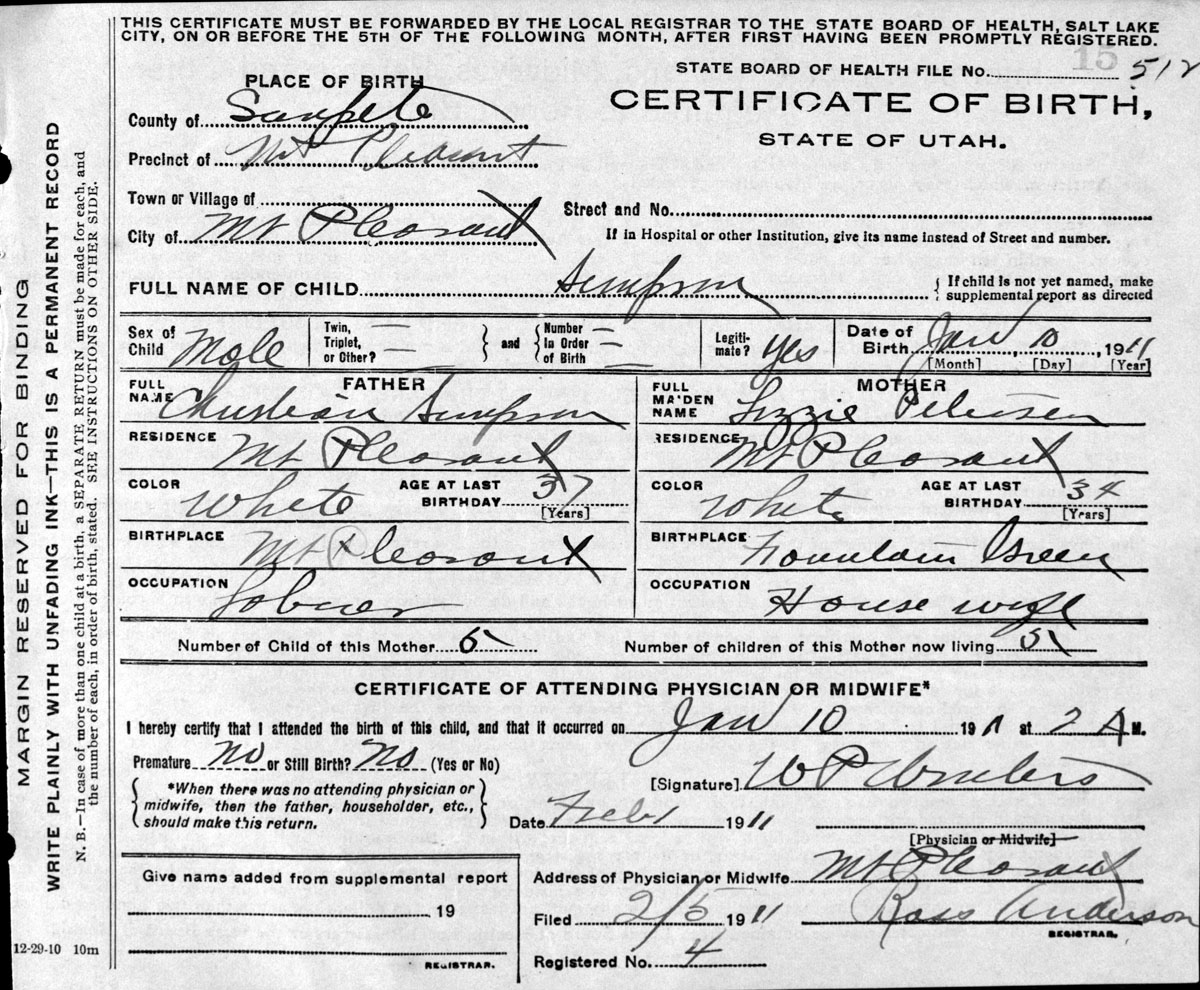 THIS CERTIFICATE MUST BE FORWARDED BY THE LOCAL REGISTRAR TO THE STATE BOARD OF HEALTH, SALT LAKE
CITY, ON OR BEFORE THE 5TH OF THE FOLLOWING MONTH, AFTER FIRST HAVING BEEN PROMPTLY REGISTERED.
15
STATE BOARD OF HEALTH FILE No. 512
PLACE OF BIRTH
CERTIFICATE OF BIRTH,
STATE OF UTAH.
County of Sanpete
Precinct of Mt Pleasant
Town or Village of
Street and No.
City of Mt Pleasant
If in Hospital or other Institution, give its name instead of Street and number.
FULL NAME OF CHILD Simpson
{ If child is not yet named, make
supplemental report as directed
Sex of Child Male
Twin, Triplet, or Other? —
} and {
Number In Order of Birth —
Legiti- mate? Yes
Date of Birth Jan 10, 1911
[Month] [Day] [Year]
FATHER
FULL NAME Christian Simpson
MOTHER
FULL MAIDEN NAME Lizzie Petersen
RESIDENCE Mt Pleasant
RESIDENCE Mt Pleasant
COLOR White
AGE AT LAST BIRTHDAY 37
[Years]
COLOR White
AGE AT LAST BIRTHDAY 34
[Years]
BIRTHPLACE Mt Pleasant
BIRTHPLACE Fountain Green
OCCUPATION
OCCUPATION House wife
Number of Child of this Mother
Number of children of this Mother now living 5
CERTIFICATE OF ATTENDING PHYSICIAN OR MIDWIFE*
I hereby certify that I attended the birth of this child, and that it occurred on Jan 10 1911 at 2 A M.
Premature No or Still Birth? No (Yes or No)
{ *When there was no attending physician or
midwife, then the father, householder, etc.,
should make this return. }
[Signature] W P Winters
Date Feb 1 1911
[Physician or Midwife]
Address of Physician or Midwife Mt Pleasant
Filed 2/5 1911
Anderson
REGISTRAR.
Registered No. 4
Give name added from supplemental report
19
REGISTRAR.
12-29-10 10m
MARGIN RESERVED FOR BINDING
WRITE PLAINLY WITH UNFADING INK—THIS IS A PERMANENT RECORD
N. B.—In case of more than one child at a birth, a SEPARATE RETURN must be made for each, and
the number of each, in order of birth, stated. SEE INSTRUCTIONS ON OTHER SIDE.